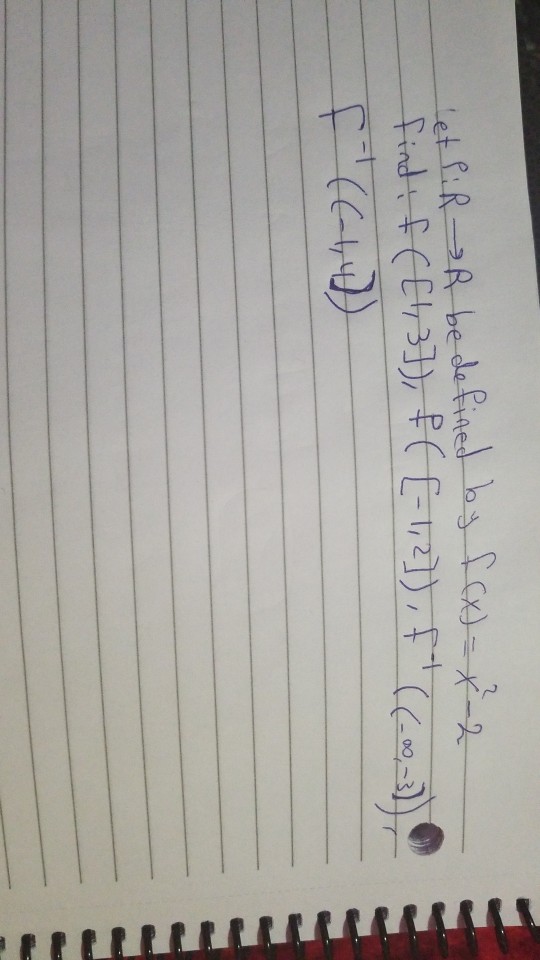 let f: R → R be defined by f(x) = x² - 2
find: f([1,3]), f([-1,2]), f⁻¹((-∞,-3]),
f⁻¹((-1,4])